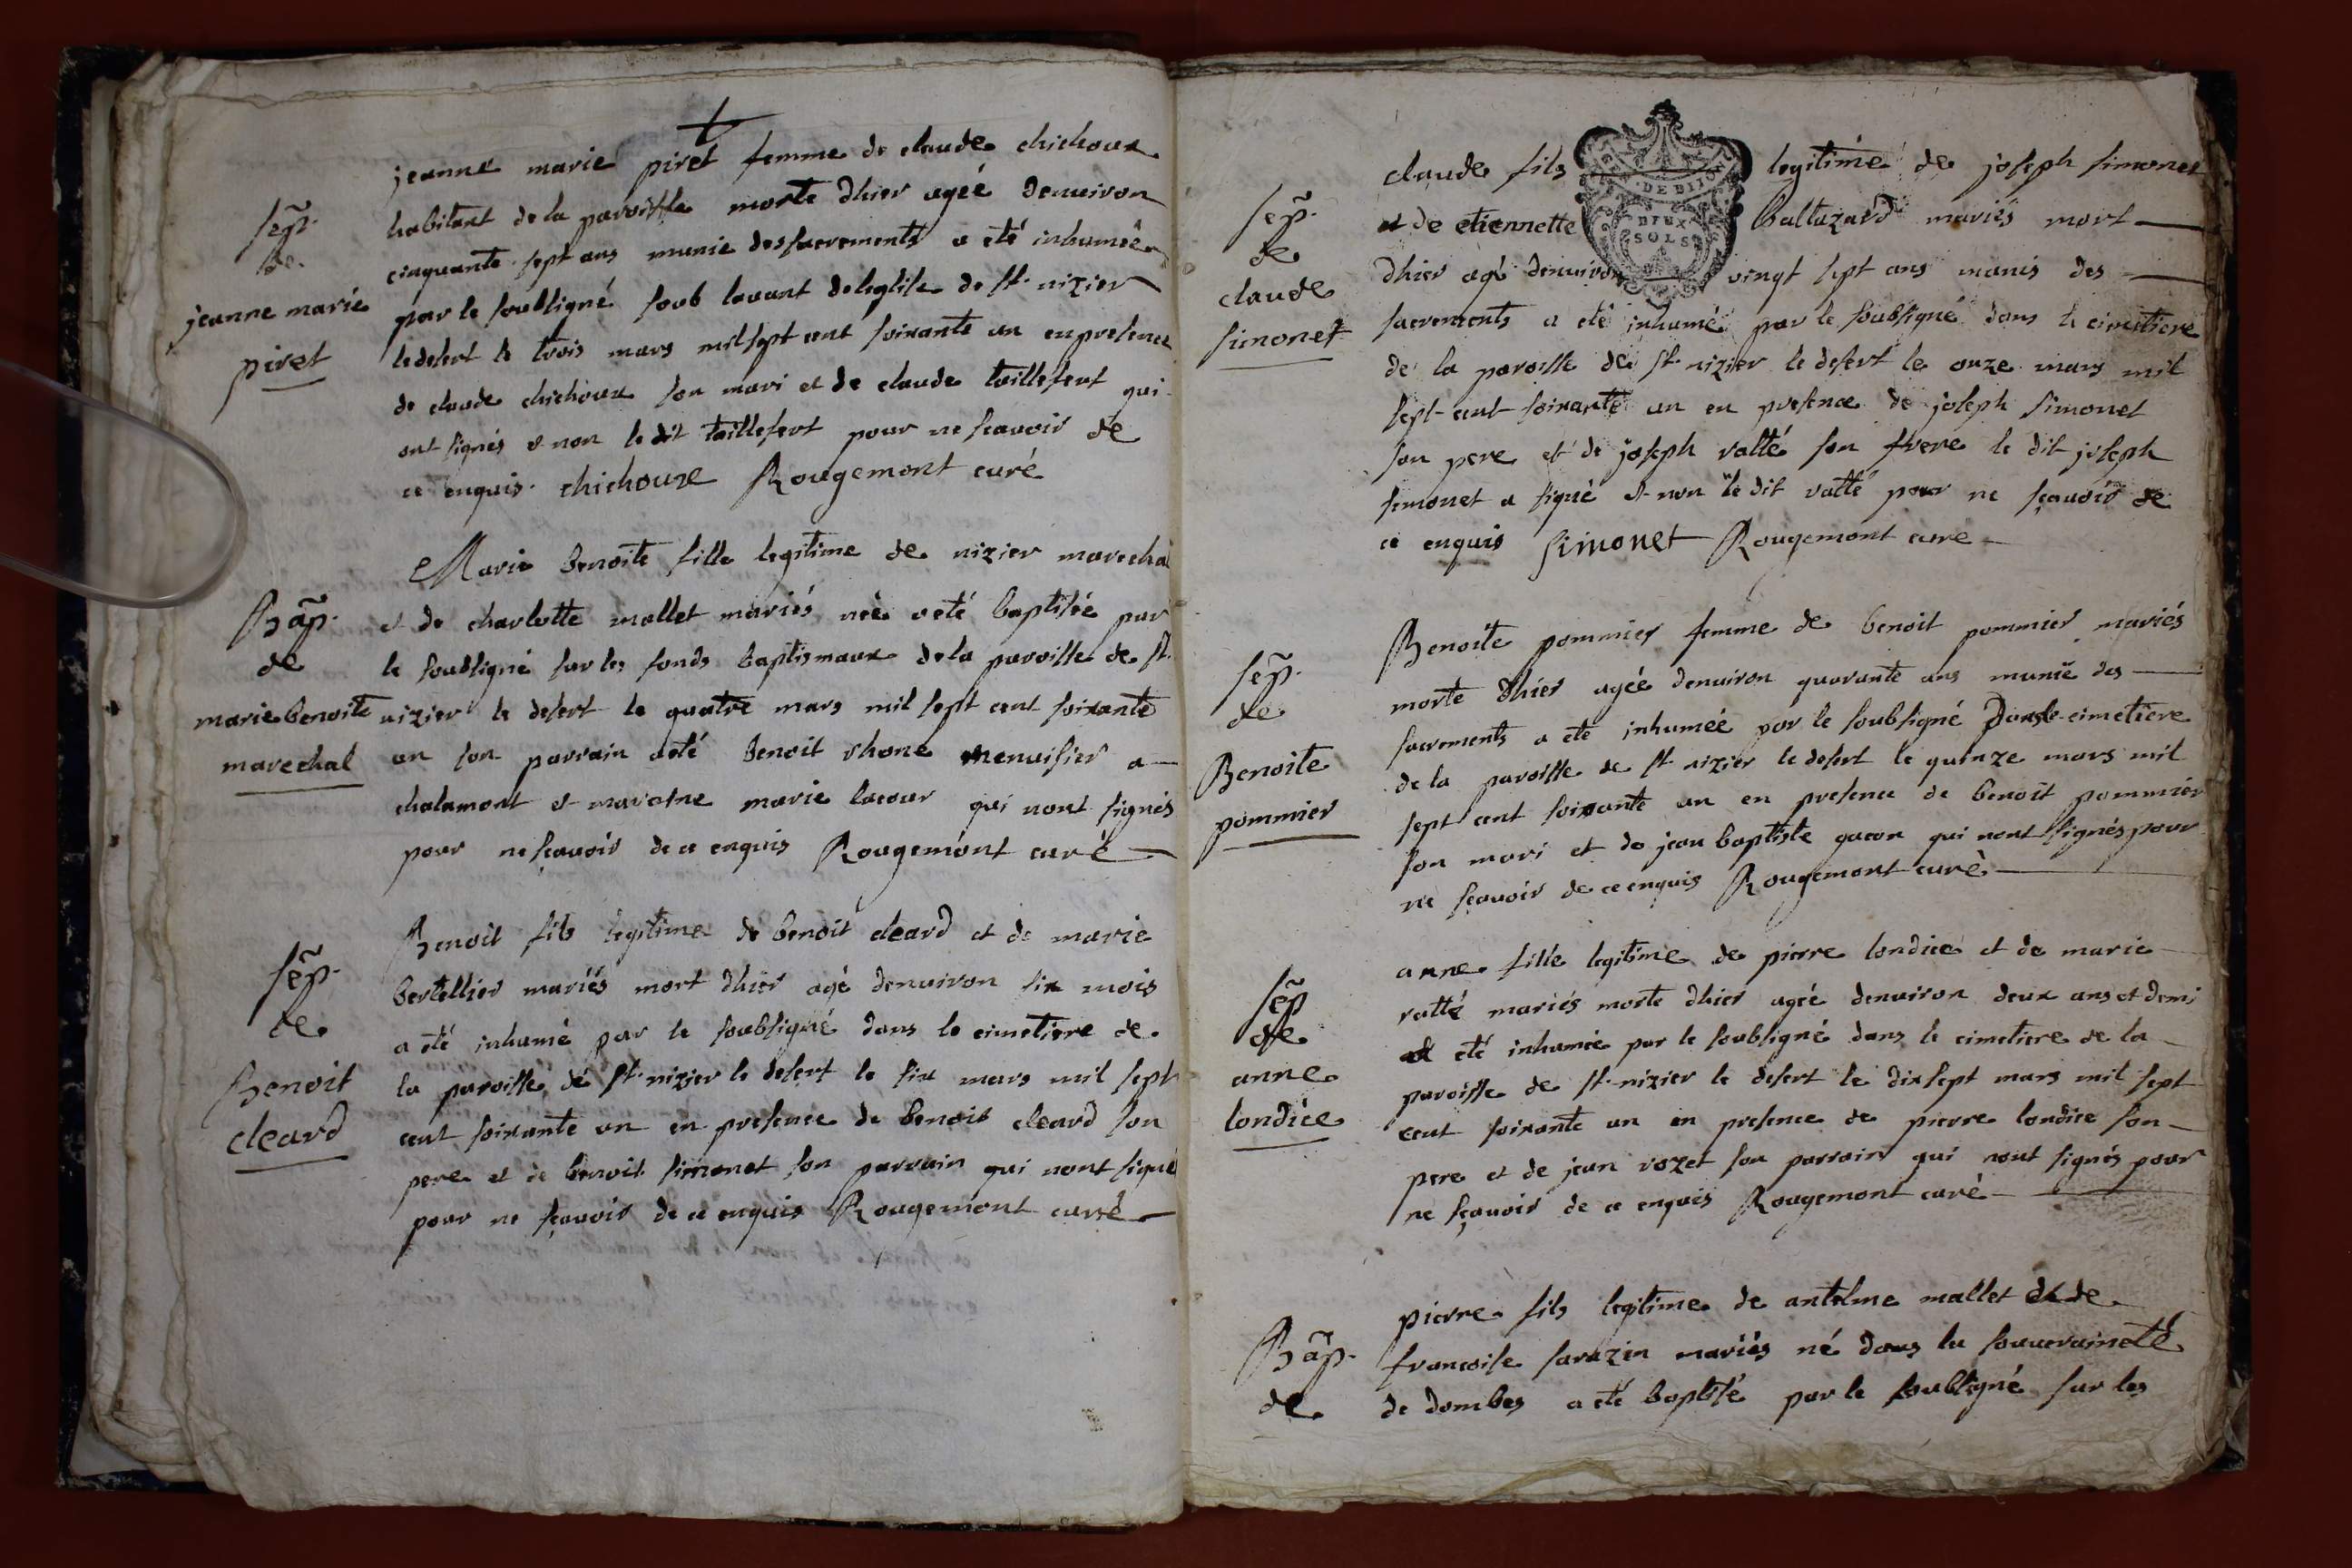 jeanne marie piret femme de claude chichoux
habitant de la paroisse morte dhier ageé denuiron
sep̃.
de
jeanne marie
piret
cinquante sept ans munie des sacrements a eté inhumeé
par le soubsigné soub lauant de leglise de st. nizier
le desert le trois mars mil sept cent soixante un en presence
de claude chichoux son mari et de claude taillefert qui
ont signés et non le dit taillefert pour ne scauoir de
ce enquis. chichouxe Rougemont curé
Marie benoite fille legitime de nizier marechal
Bap̃.
de
marie benoite
marechal
et de charlotte mallet mariés neé a eté baptiseé par
le soubsigné sur les fonds baptismaux de la paroisse de st.
nizier le desert le quatre mars mil sept cent soixante
un son parrain a eté benoit rhone menuisier a
chalamont et maraine marie lacour qui nont signés
pour ne scauoir de ce enquis Rougemont curé
sep̃.
de
Benoit
cleard
Benoit fils legitime de benoit cleard et de marie
bertellier mariés mort dhier agé denuiron six mois
a eté inhumé par le soubsigné dans le cimetiere de
la paroisse de st. nizier le desert le six mars mil sept
cent soixante un en presence de benoit cleard son
pere et de benoit simonet son parrain qui nont signé
pour ne scauoir de ce enquis Rougemont curé
sep̃.
de
claude
simonet
claude fils legitime de joseph simonet
et de etiennette baltazard mariés mort
DE DIJON
DEUX
SOLS
dhier agé denuiron vingt sept ans munis des
sacrements a eté inhumé par le soubsigné dans le cimetiere
de la paroisse de st nizier le desert le onze mars mil
sept cent soixante un en presence de joseph simonet
son pere et de joseph ratté son frere le dit joseph
simonet a signé et non le dit ratté pour ne sçauoir de
ce enquis simonet Rougemont cure
sep̃.
de
Benoite
pommier
Benoite pommier femme de benoit pommier mariés
morte dhier ageé denuiron quarante ans munie des
sacrements a eté inhumeé par le soubsigné Dans le cimetiere
de la paroisse de st nizier le desert le quinze mars mil
sept cent soixante un en presence de benoit pommier
son mari et de jean baptiste gacon qui nont signés pour
ne sçauoir de ce enquis Rougemont curé
sep̃
de
anne
londice
anne fille legitime de pierre londice et de marie
ratté mariés morte dhier ageé denuiron deux ans et demi
a eté inhumeé par le soubsigné dans le cimetiere de la
paroisse de st nizier le desert le dix sept mars mil sept
cent soixante un en presence de pierre londice son
pere et de jean rozet son parrain qui nont signés pour
ne sçauoir de ce enquis Rougemont curé
Bap̃.
de
pierre fils legitime de antelme mallet et de
francoise sarazin mariés né dans la souuraineté
de dombes a eté baptisé par le soubsigné sur les